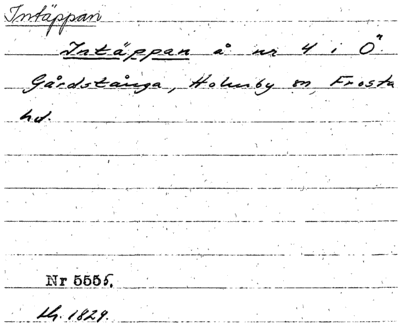 Intäppan
Intäppan å nr 4 i Ö
Gårdstånga, Holmby sn, Frosta
hd.
Nr 5555.
1829.